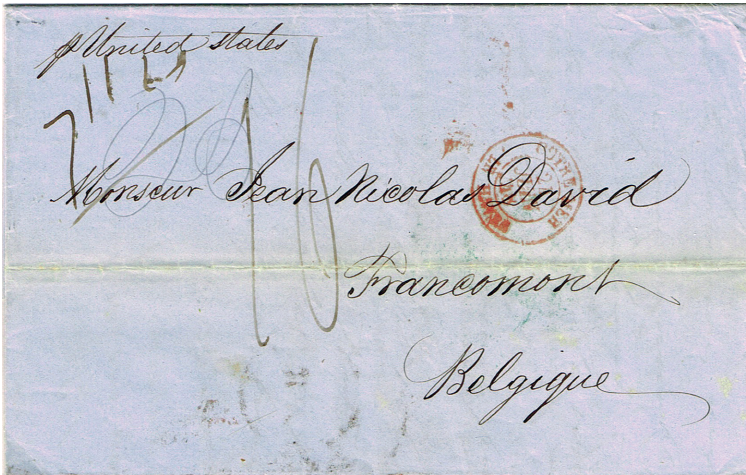 p United States
16
Monsieur Jean Nicolas David
OUTRE-MER
Francomont
Belgique